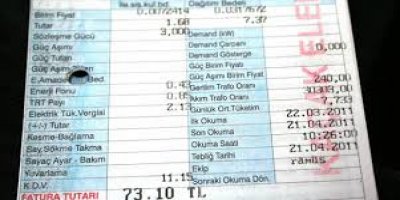 İle.sis.kul bd. Dağıtım Bedeli
Birim Fiyat 0.0072414 0.0317572
Tutar 1.68 7,37
Sözleşme Gücü 3,000 Demand (kW)
Güç Aşımı Demand Çarpanı 0,000
Güç Aşımı Demand Gösterge
Güç Aşımı Tutarı Güç Birim Fiyatı
E. Bed. Güç Aşımı Birim Fiyatı 240,00
Enerji Fonu 0.43 Gerilim Trafo Oranı
TRT Payı 0.85 Akım Trafo Oranı 7,733
Elektrik Tük.Vergisi 2.13 Günlük Ort.Tüketim 22.03.2011
(+/-) Tutar İlk Okuma 21.04.2011
Kesme-Bağlama Son Okuma 10:26:00
Say.Sökme Takma Okuma Saati 21.04.2011
Sayaç Ayar - Bakım Tebliğ Tarihi
Yuvarlama Ekip
K.D.V. 11.15 Sonraki Okuma Dön.
FATURA TUTARI 73.10 TL